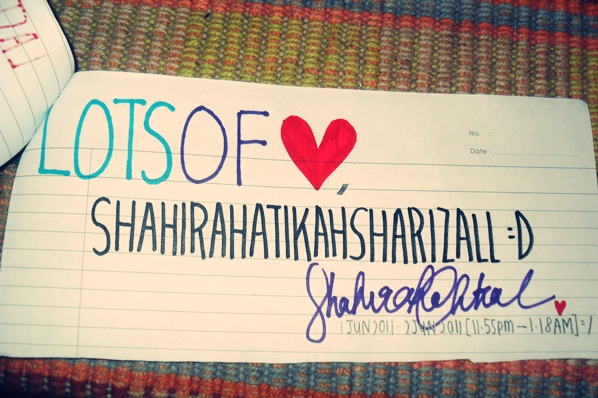 LOTS OF ♥,
No. :
Date :
SHAHIRAHATIKAHSHARIZALL =D
1 JUN 2011 - 2 JUN 2011 [11:55pm → 1:18AM] = /